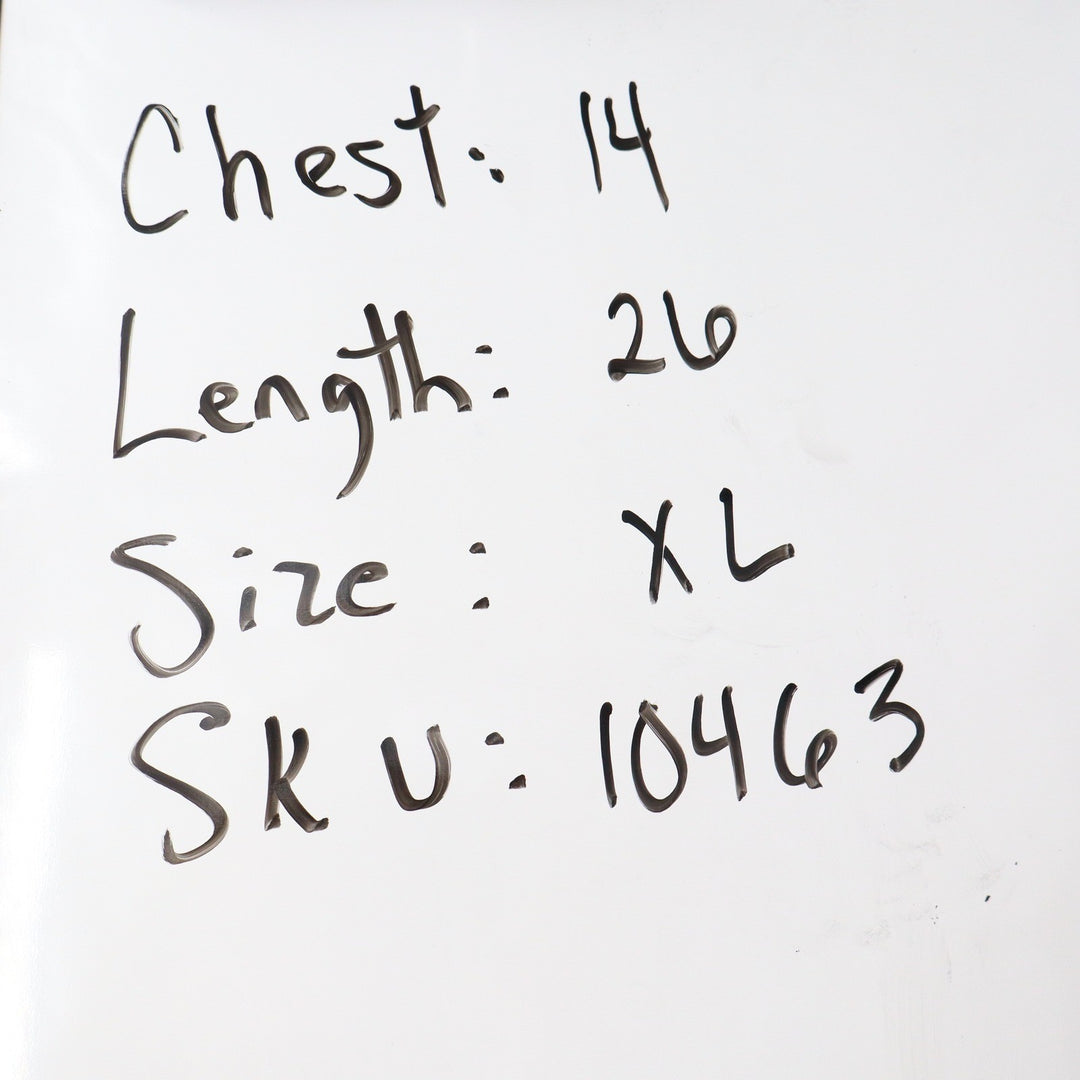 Chest: 14
Length: 26
Size: XL
SKU: 10463